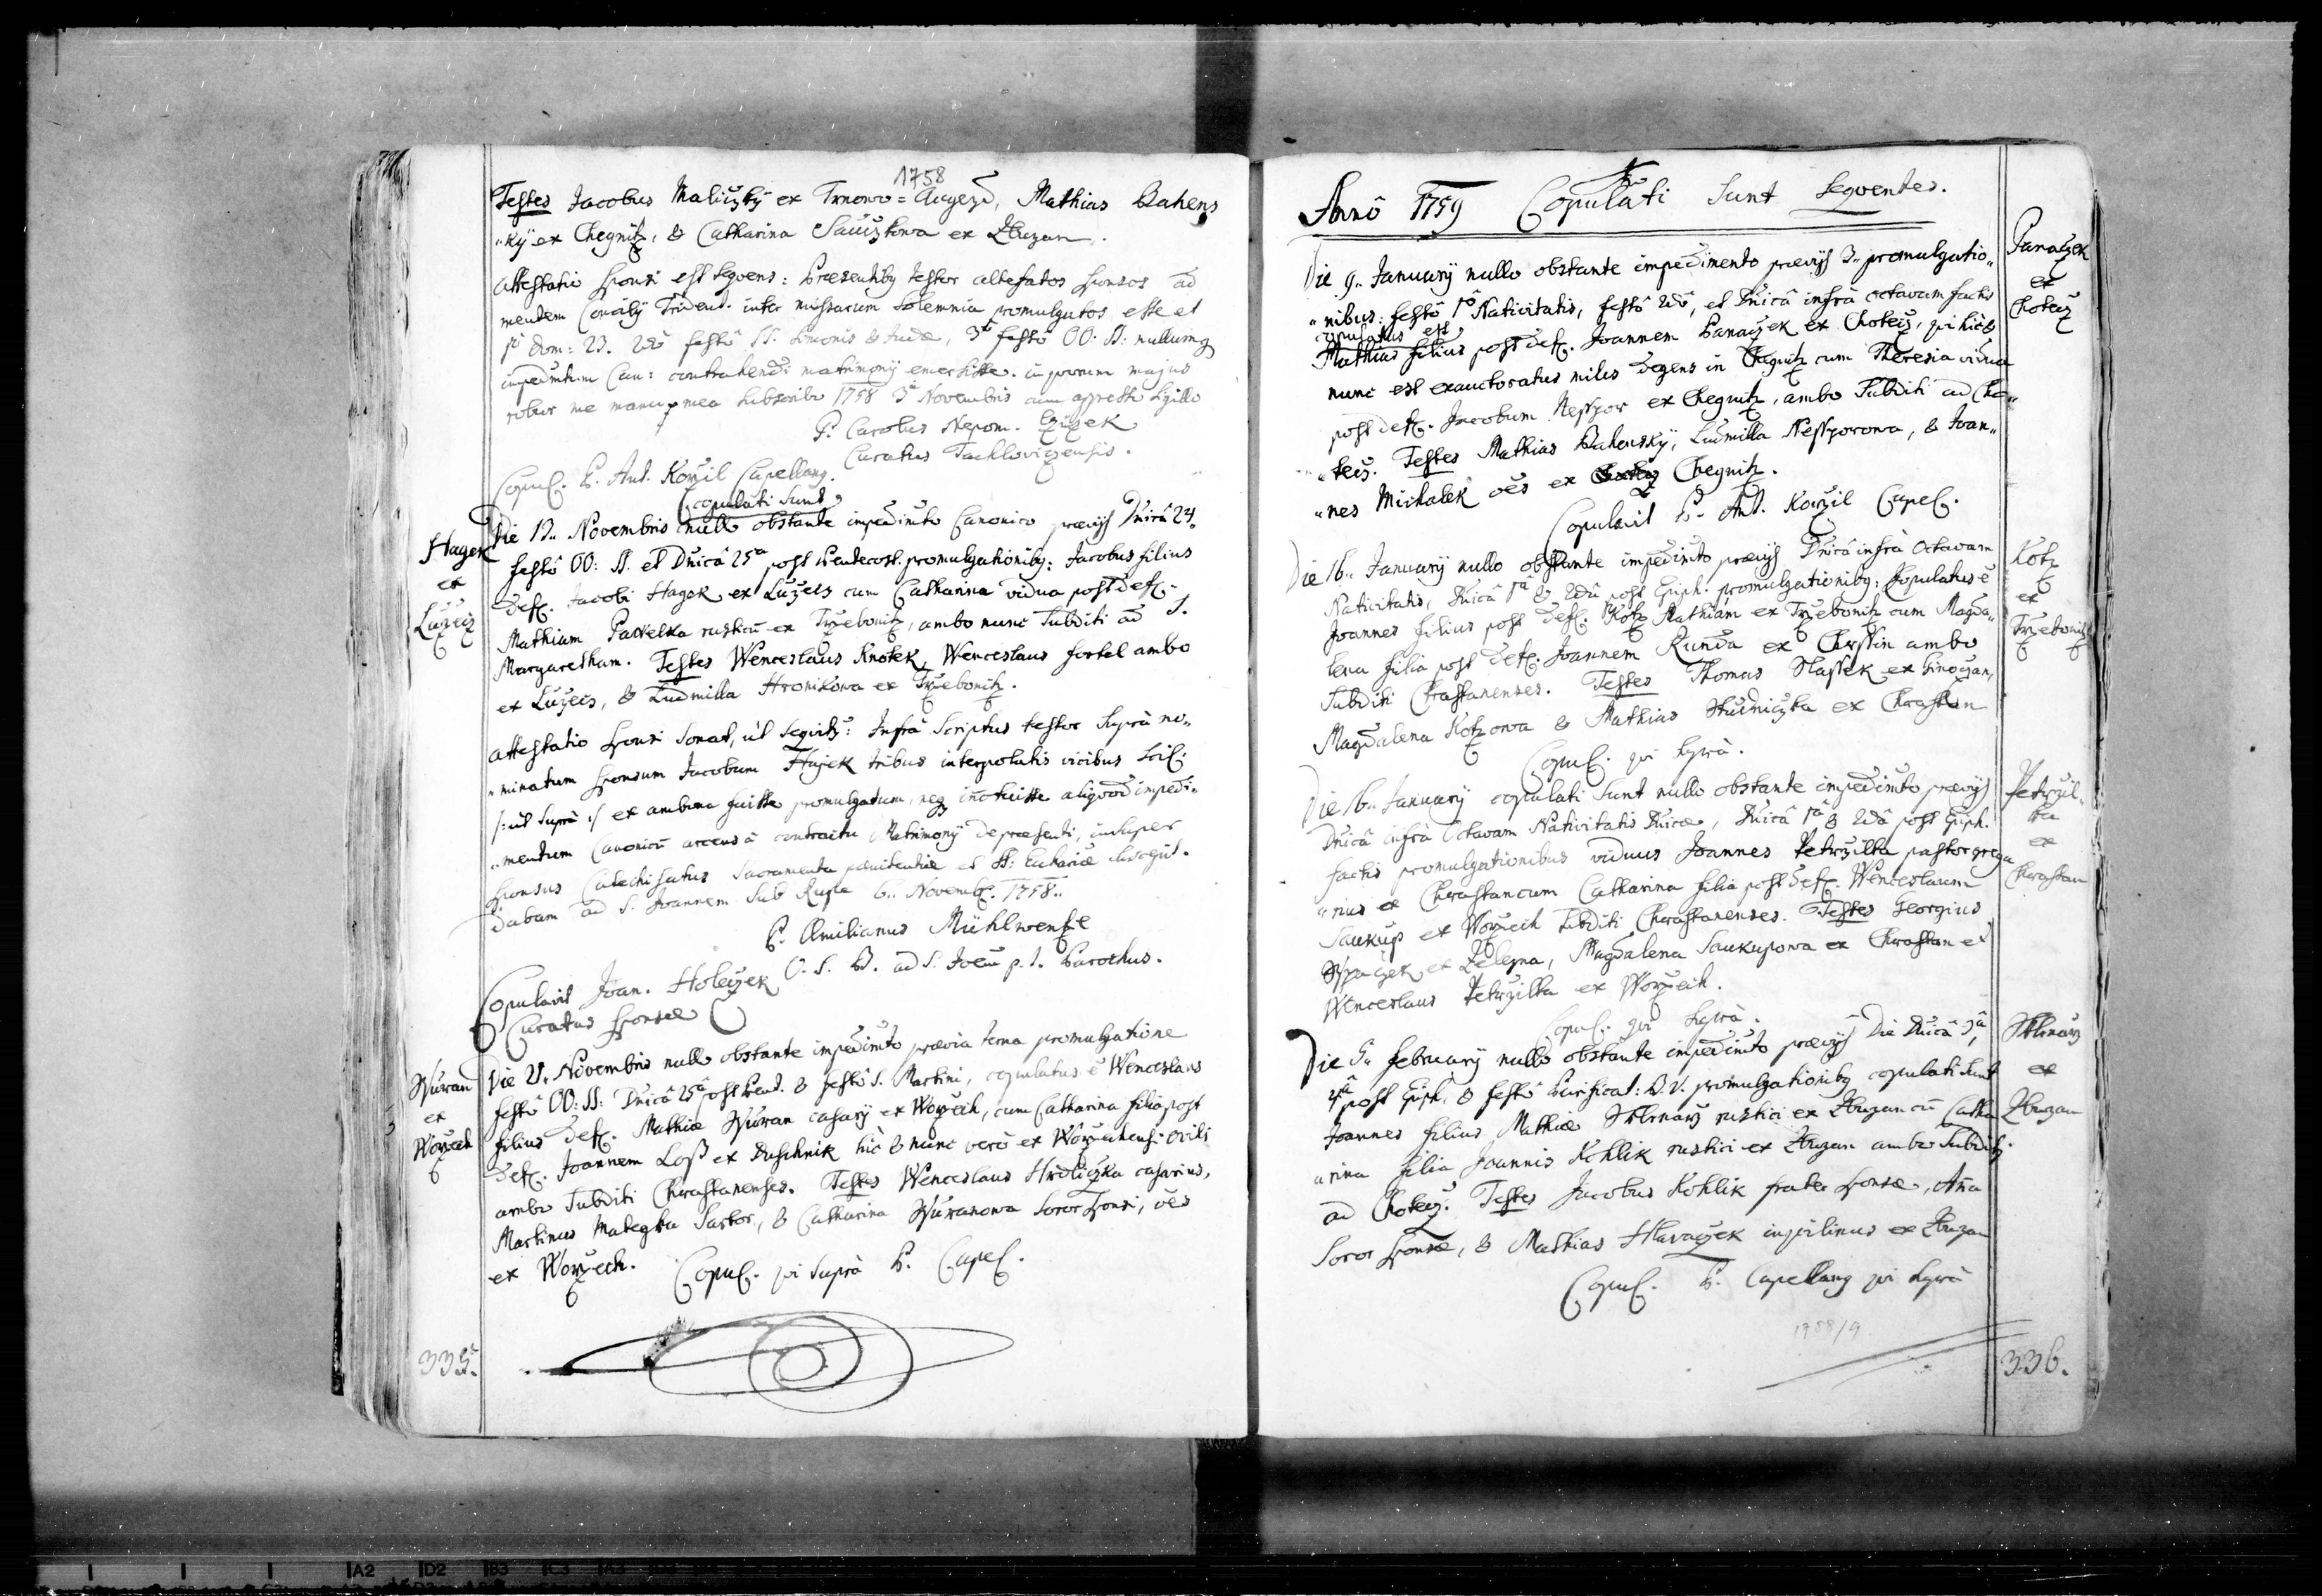 1758
Testes Jacobus Maliczky ex Trnowo = Augezd, Mathias Bahens
"ky ex Chegnitz, & Catharina Sauczkowa ex Zbuzan.
Attestatio sponsi est seqvens: Praesentibg testor altefatos sponsos ad
mentem Concilij Trident. inter missarum solemnia promulgatos esse et
1o Dom: 23. 2do festô SS. Simonis & Judae, 3o festô OO: SS: nullumq
impedimtum Can: contrahendi matrimonij emersisse. in quorum majus
robur me manu mea subscribo 1758 3 Novembris cum appresso sigillo
P. Carolus Nepom. Czizek
Curatus Tachloviczensis.
Copul. P. Ant. Korzil Capellang.
Copulati sunt
Hagek
ex
Luzecz
Die 13.. Novembris nullo obstante impedimto Canonico praevijs Dnicâ 24.
festô OO: SS. et Dnicâ 25a post Pentecost. promulgationibg: Jacobus filius
def. Jacobi Hagek ex Luzecz cum Catharina vidua post def.
Mathiam Pawelka rusticu ex Trzebonitz, ambo nunc subditi ad S.
Margaretham. Testes Wenceslaus Knotek, Wenceslaus fortel ambo
ex Luzecz, & Ludmilla Hronikowa ex Trzebonitz.
Attestatio sponsi sonat, ut seqvitur: Infra scriptus testor supra no"
"minatum sponsum Jacobum Hajek tribus interpolatis vicibus scil:
/: ut supra :/ ex ambona fuisse promulgatum, neq innotuisse aliqvod impedi"
"mentum Canonicu arcens â contractu Matrimonij de praesenti, insuper
sponsus Catechisatus Sacramenta paenitentiae et SS: Euchariae suscepit.
Dabam ad S. Joannem sub Rupe 6.. Novemb. 1758..
P. Aemilianus Mühlwentzl
O. S. B. ad S. Joem p. t. Parochus.
Copulavit Joan. Holeczek
Curatus sponsae
Spuran
ex
Worzech
Die 21. Novembris nullo obstante impedimto praevia terna promulgatione
festô OO: SS: Dnicâ 25a post Pent. & festô S. Martini, copulatus e Wenceslaus
filius def. Mathiae Spuran casarij ex Worzech, cum Catharina filia post
def. Joannem Loss ex Duschnik hic & nunc vero ex Worzechensi ovili
ambo subditi Chrastanenses. Testes Wenceslaus Hrdliczka casarius,
Martinus Mategka Sartor, & Catharina Spuranowa soror sponsi, oes
ex Worzech. Copul. qvi supra P. Capel.
335.
Annô 1759 Copulati sunt seqventes.
Panaczek
ex
Chotecz
Die 9.. Januarij nullo obstante impedimento praevijs 3.. promulgatio"
"nibus: festô 1o Nativitatis, festô 2do, et Dnicâ infra octavam factis
copulatus est
Mathias filius post def. Joannem Panaczek ex Chotecz, qvi hic &
nunc est exauctoratus miles degens in Chegnitz cum Theresia vidua
post def. Jacobum Nesspor ex Chegnitz, ambo subditi ad Cho"
"tecz. Testes Mathias Bahensky, Ludmilla Nessporowa, & Joan"
"nes Michalek oes ex Chegnitz.
Copulavit P. Ant. Korzil Capel.
Kotz
ex
Trzebonitz
Die 16.. Januarij nullo obstante impedimto praevijs Dnicâ infra Octavam
Nativitatis, Dnicâ 1a & 2da post Epiph. promulgationibg: Copulatus e
Joannes filius post def. Kotz Mathiam ex Trzebonitz cum Magda"
lena filia post def. Joannem Runda ex Chrstin ambo
subditi Chrastanenses. Testes Thomas Stassek ex Ginoczan,
Magdalena Kotzowa & Mathias Studniczka ex Chrastan
Copul. qvi supra.
Petrzil"
ka
ex
Chrastan
Die 16.. Januarij copulati sunt nullo obstante impedimto praevijs
Dnicâ infra Octavam Nativitatis Dnicae, Dnicâ 1a & 2da post Epiph.
factis promulgationibus viduus Joannes Petrzilka pastor grega
"rius ex Chrastan cum Catharina filia post def. Wenceslaum
Saukup ex Worzech subditi Chrastanenses. Testes Georgius
Spaczek ex Zelezna, Magdalena Saukupowa ex Chrastan et
Wenceslaus Petrzilka ex Worzech.
Copul. qvi supra.
Sklenarz
ex
Zbuzan
Die 5.. februarij nullo obstante impedimto praevijs Die Dnicâ 3a,
4ta post Epiph. & festô Purificat: B. V. promulgationibg copulati sunt
Joannes filius Mathiae Sklenarz rustici ex Zbuzan cu Catha
"rina filia Joannis Kohlik rustici ex Zbuzan ambo subditi
ad Chotecz. Testes Jacobus Kohlik frater sponsae, Anna
soror sponsae, & Mathias Hlavaczek inqvilinus ex Zbuzan
Copul. P. Capellang qvi supra
1758/9
336.
A2 D2 B3 C3